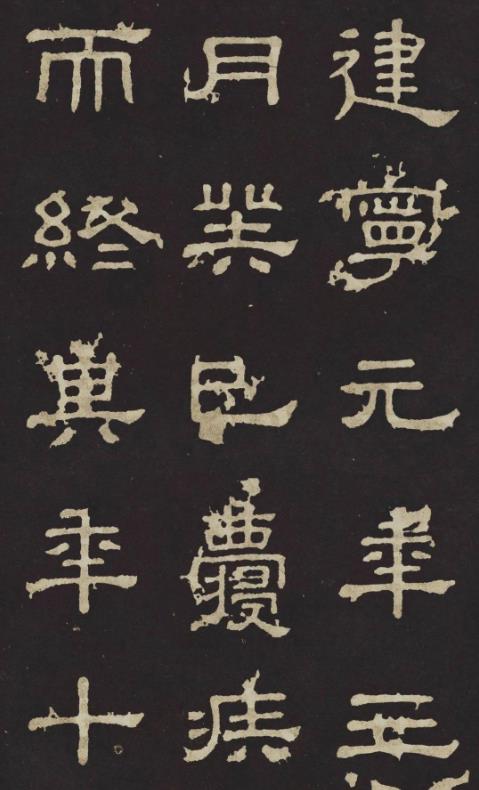 建寧元年五
月癸巳疾
而終其年十